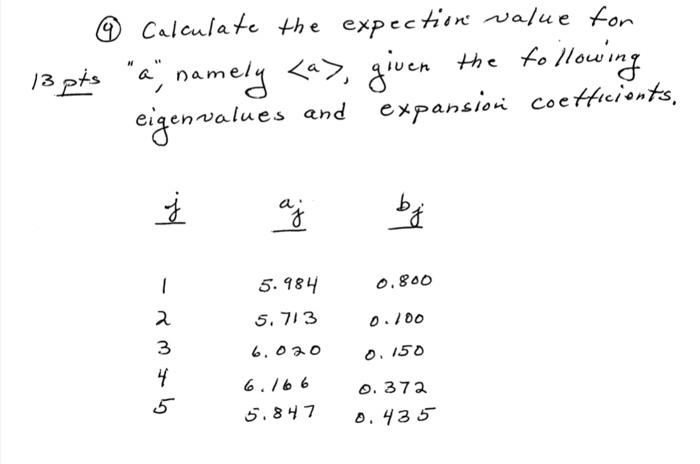 ④ Calculate the expection value for
13 pts "a", namely <a>, given the following
eigenvalues and expansion coefficients.
j aj bj
1 5.984 0.800
2 5.713 0.100
3 6.020 0.150
4 6.166 0.372
5 5.847 0.435